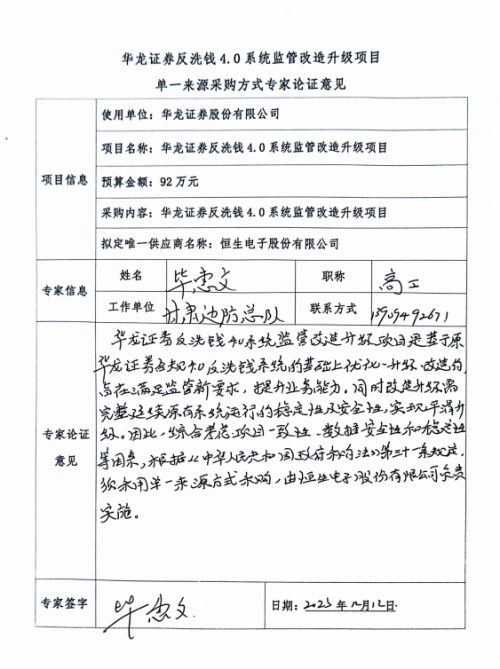 华龙证券反洗钱4.0系统监管改造升级项目
单一来源采购方式专家论证意见
项目信息
使用单位：华龙证券股份有限公司
项目名称：华龙证券反洗钱4.0系统监管改造升级项目
预算金额：92万元
采购内容：华龙证券反洗钱4.0系统监管改造升级项目
拟定唯一供应商名称：恒生电子股份有限公司
专家信息
姓名 毕惠文 职称 高工
工作单位 甘肃边防总队 联系方式
专家论证
意见
华龙证券反洗钱4.0系统监管改造升级项目是基于原
华龙证券合规4.0反洗钱系统的基础上优化、升级、改造的，
旨在满足监管新要求，提升业务能力。同时改造升级需
完整延续原有系统运行的稳定性及安全性，实现平滑升
级。因此，综合考虑项目一致性、数据安全性和稳定性
等因素，根据《中华人民共和国政府采购法》第三十一条规定，
须采用单一来源方式采购，由恒生电子股份有限公司负责
实施。
专家签字 毕惠文
日期：2025年12月12日